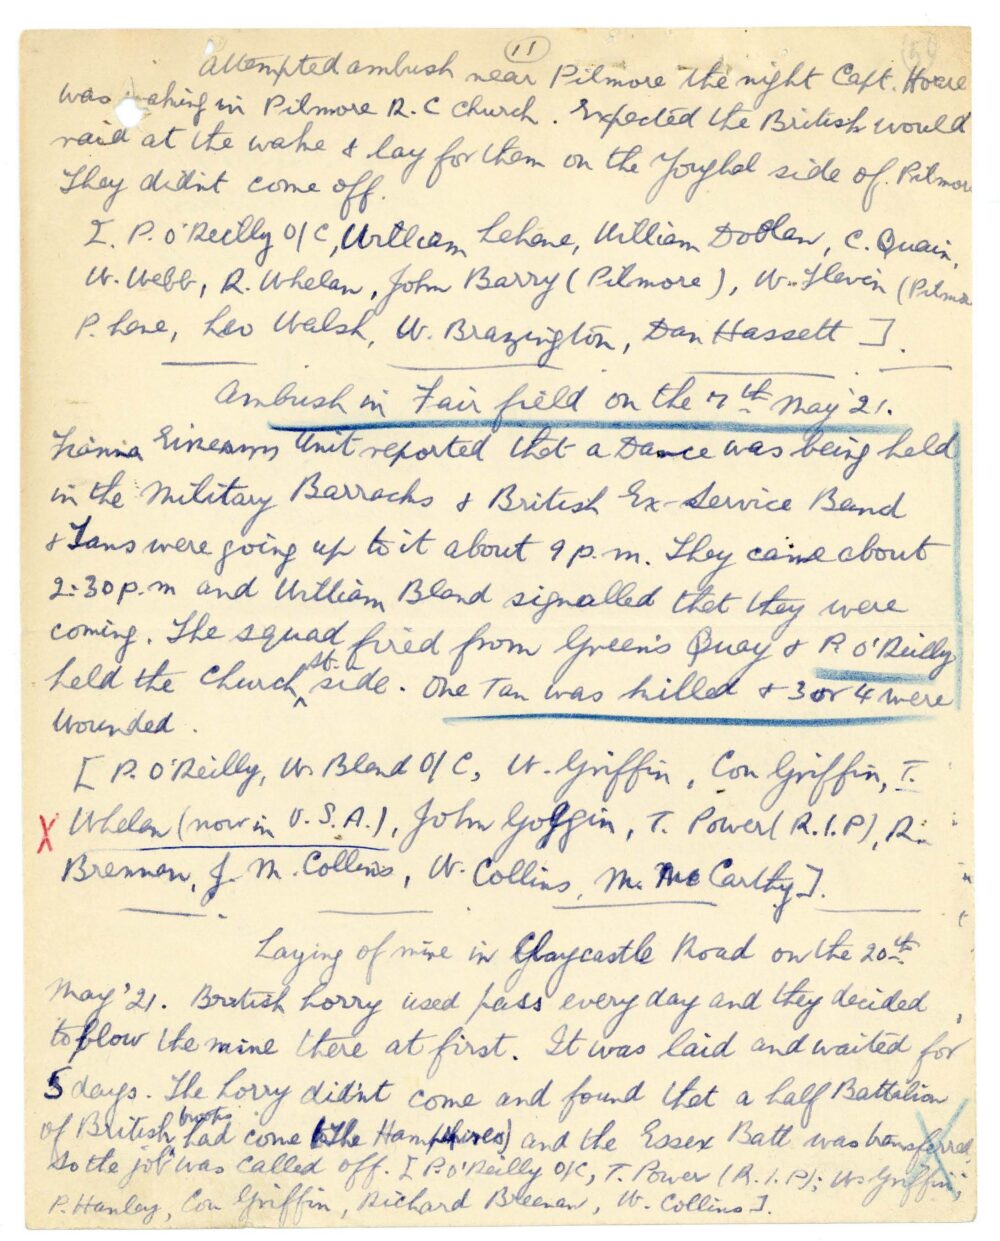 11
Attempted ambush near Pilmore the night Capt.
was waking in Pilmore R.C Church. Expected the British would
raid at the wake & lay for them on the Youghal side of Pilmore
They didnt come off.
[. P. O'Reilly O/C, William Lehane, William Doolan, C. Quain,
W. Webb, R. Whelan, John Barry (Pilmore), W. Flevin (Pilmore
P. Lane, Leo Walsh, W. Brazington, Dan Hassett ].
Ambush in Fair field on the 7th May '21.
Fianna Eireann Unit reported that a Dance was being held
in the Military Barracks & British Ex-Service Band
& Tans were going up to it about 9 p.m. They came about
2:30 p.m and William Bland signalled that they were
coming. The squad fired from Green's Quay & P. O'Reilly
held the Church St. side. One Tan was killed & 3 or 4 were
wounded.
[ P. O'Reilly, W. Bland O/C, W. Griffin, Con Griffin, T.
X Whelan (now in U.S.A.), John Goggin, T. Power (R.I.P), R.
Brennan, J. M. Collins, W. Collins, M. Mc Carthy].
Laying of mine in Claycastle Road on the 20th
May '21. British lorry used pass every day and they decided
to blow the mine there at first. It was laid and waited for
5 days. The lorry didn't come and found that a half Battalion
of British troops had come (The Hampshires) and the Essex Batt was transferred
so the job was called off. [ P. O'Reilly O/C, T. Power (R.I.P); W. Griffin;
P. Hanley, Con Griffin, Richard Breenan, W. Collins ].